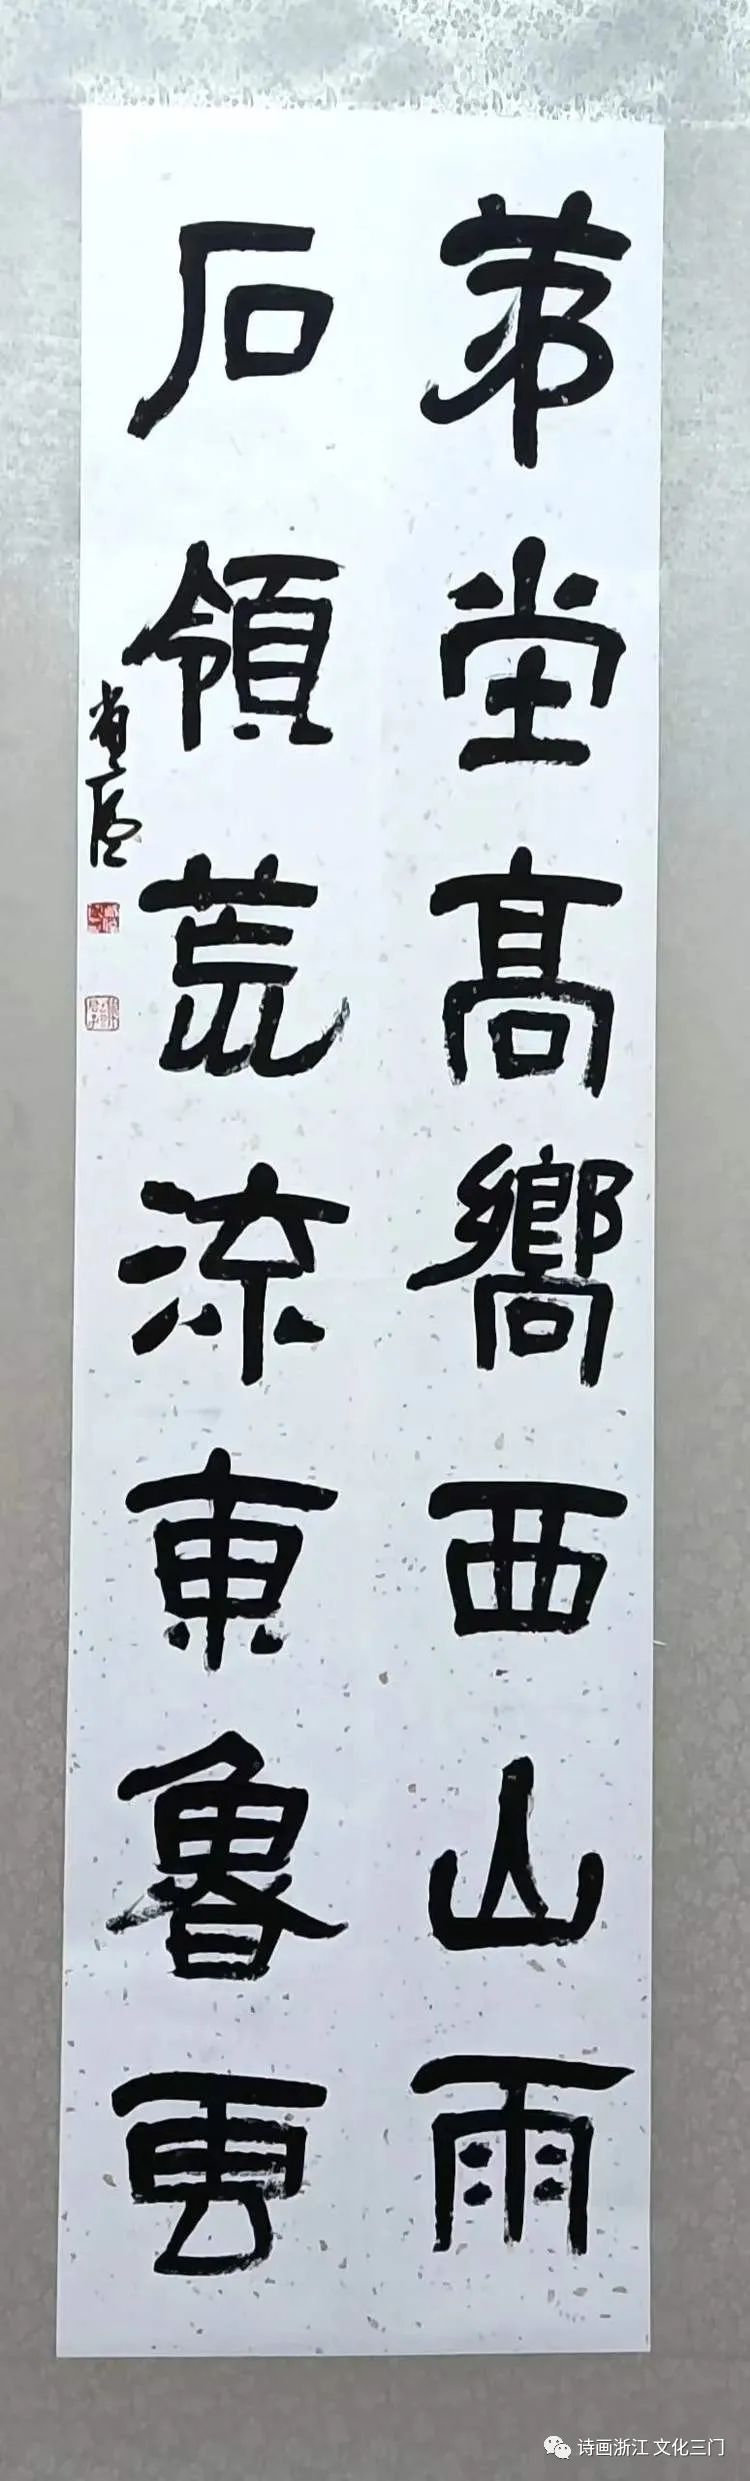 茅堂高嚮西山雨
石領荒流東魯雲
诗画浙江 文化三门